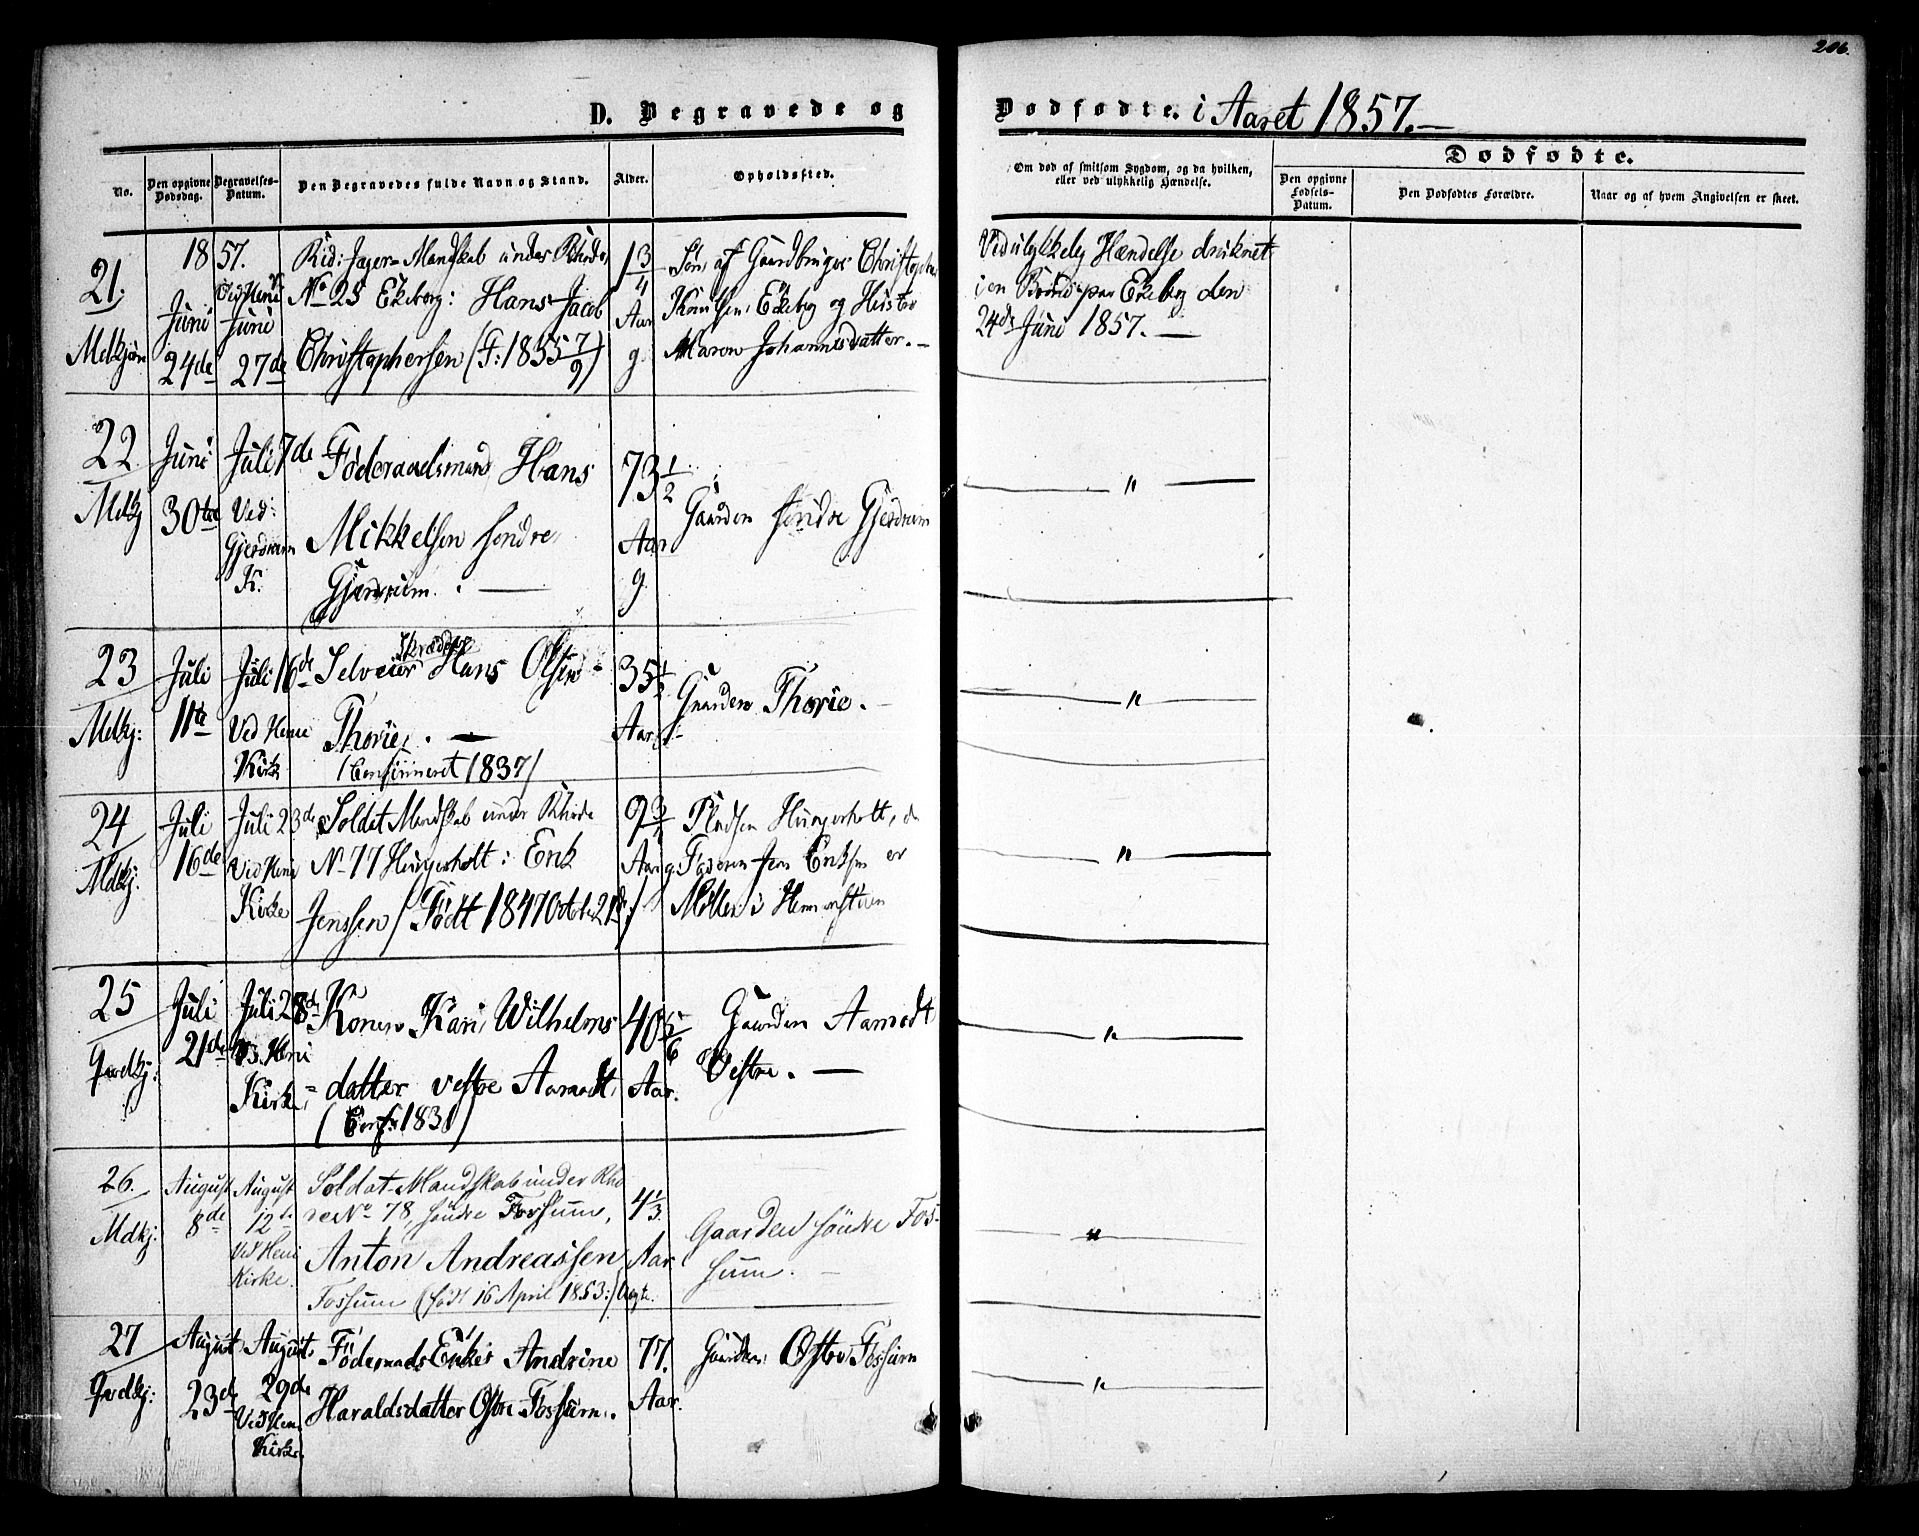 206.
D. Begravede og
Dødfødte. i Aaret 1857.—
No.
Den opgivne Dødsdag.
Begravelses-Datum.
Den Begravedes fulde Navn og Stand.
Alder.
Opholdssted.
Om død af smitsom Sygdom, og da hvilken,
eller ved ulykkelig Hændelse.
Dødfødte.
Den opgivne Fødsels-Datum.
Den Dødfødtes Forældre.
Naar og af hvem Angivelsen er skeet.
1857.
21.
Mdkjøn
Juni
24de
Juni
27de
Rid: Jæger-Mandskab under Rhode,
No 25 Ekeberg: Hans Jacob
Christophersen (F: 1855 7/9)
1 3/4
Aar
g.
Søn af Gaardbruger
Ekeberg og
Maren Johannisdatter. –
Ved ulykkelig Hændelse druknet
i en Brønd paa Ekeberg den
24de Juni 1857. —
22
Mdkj
Juni
30te
Juli 7de
Ved:
Gjerdrum
K.
Föderaadsmand Hans
Mikkelsen søndre
Gjerdrum. —
73 1/2
Aar
g.
Gaarden søndre Gjerdrum
— " —
23
Mdkj:
Juli
11te
Juli 16de
Ved Heni
Kirk
Selveier Hans Olsen
Thorie. —
(Confirmeret 1837)
35 1/2
Aar
Gaarden Thorie. –
— " —
24
Mdkj.
Juli
16de
Juli 23de
Ved Heni
Kirke
Soldat Mandskab under Rhode
No 77 Hungerholt: Erik
Jenssen (Født 1847 October 21de)
9 3/4
Aar g.
Pladsen Hungerholt,
Faderen Jens Eriksen er
Møller i
— " —
25
Qvdkj:
Juli
21de
Juli 28de
V. Heni
Kirke
Konen Kari Wilhelms
= datter vestre Aamodt,
(Conf: 1831)
40 5/6
Aar.
Gaarden Aamodt
Vestre. —
— " —
26.
Mdkj:
August
8de
August
12te
Ved Heni
Kirke.
Soldat-Mandskab under Rho
de No 78, søndre Fossum,
Anton Andreassen
Fossum (født 16 April 1853:)
4 1/3
Aar
Gaarden söndre Fos-
sum. –
— " —
27
Qvdkj:
August
23de
August
29de
Ved Heni
Kirke.
Föderaads Enke Andrine
Haraldsdatter Østre Fossum.
77.
Aar.
Gaarden Østre Fossum
— " —